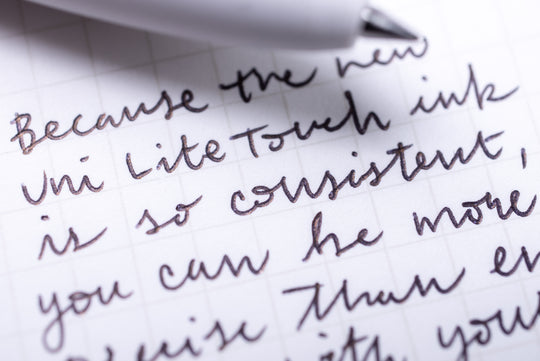 Because the new
Uni Lite Touch ink
is so consistent,
you can be more
than